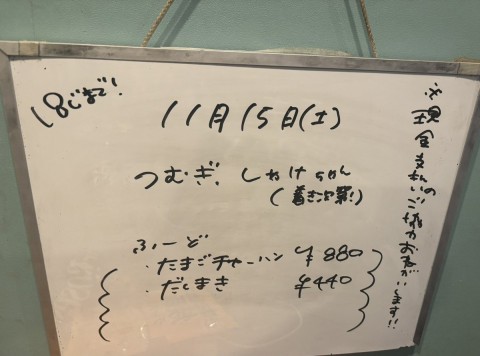 18じまで!
11月15日(土)
つむぎ、しゃけちゃん
(着き次第!)
ふーど
・たまごチャーハン ¥880
・だしまき ¥440
※現金支払いのご協力お願いします!!